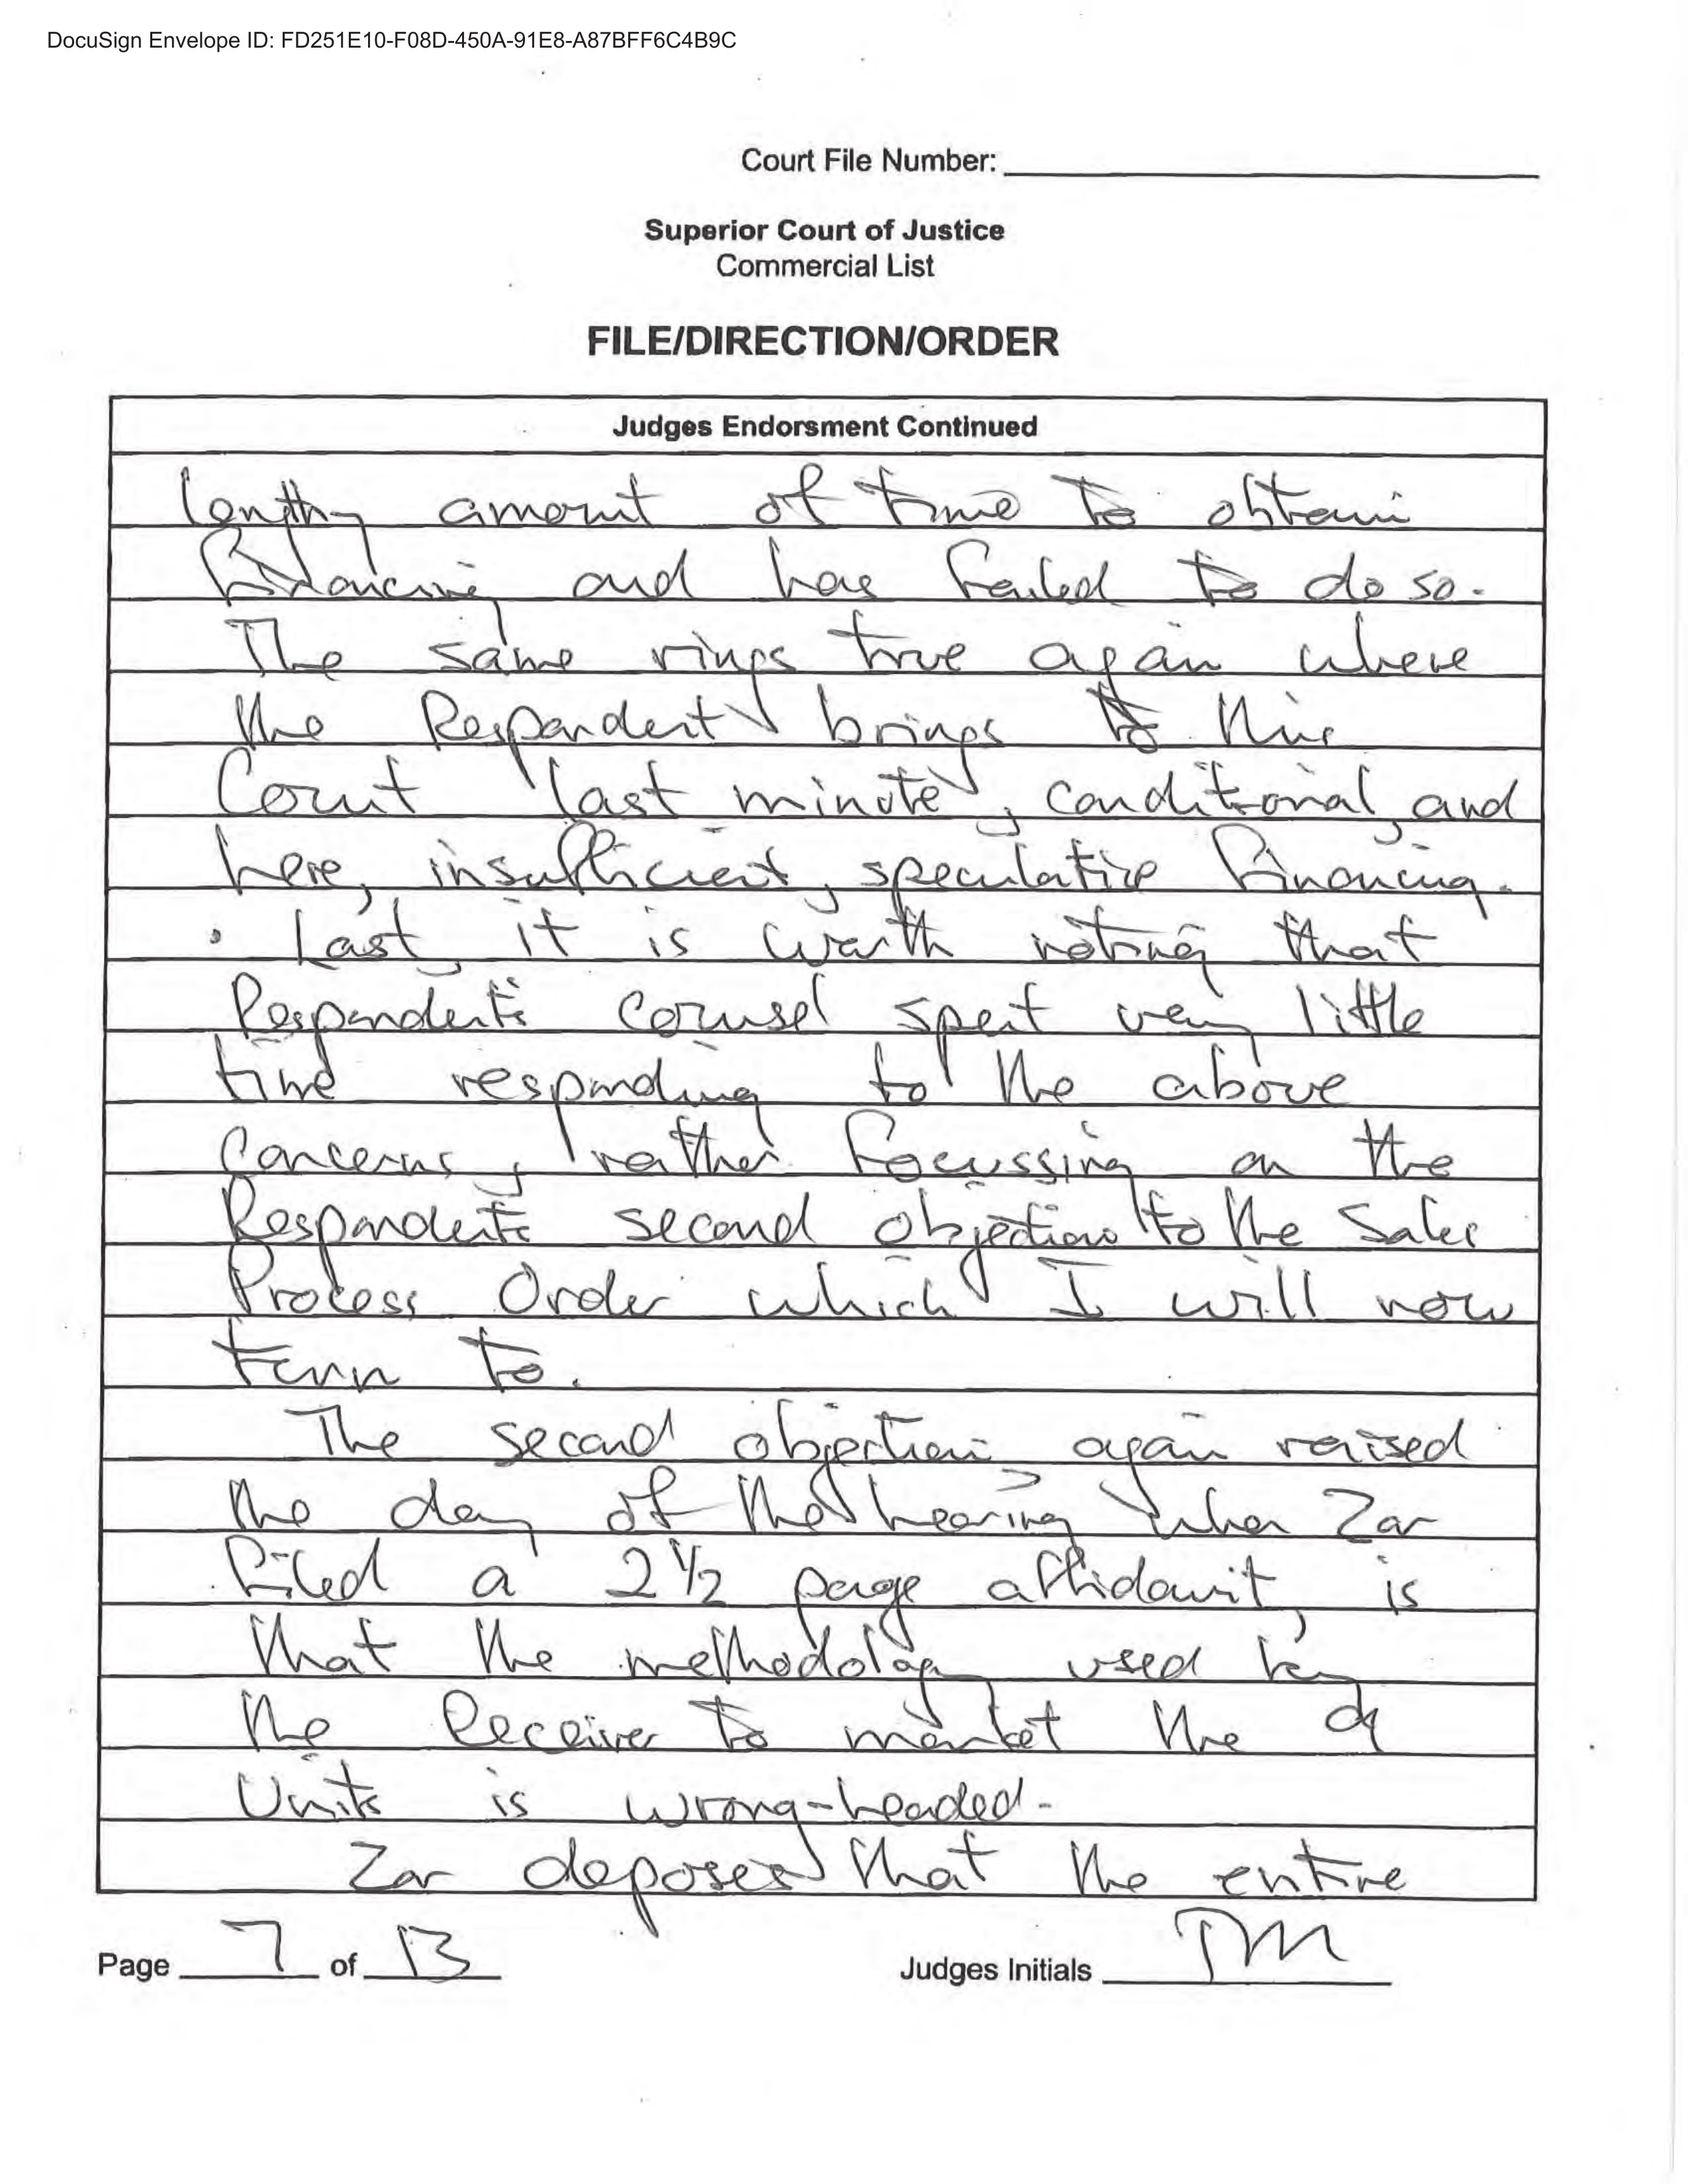 DocuSign Envelope ID: FD251E10-F08D-450A-91E8-A87BFF6C4B9C
Court File Number:
Superior Court of Justice
Commercial List
FILE/DIRECTION/ORDER
Judges Endorsment Continued
lengthy amount of time to obtain
financing and has failed to do so.
The same rings true again where
the Respondent brings to this
Court last minute, conditional, and
here, insufficient, speculative financing.
Last, it is worth noting that
Respondent's counsel spent very little
time responding to the above
concerns, rather focussing on the
Respondents second objection to the Sales
Process Order which I will now
turn to.
The second objection again raised
the day of the hearing when Zar
filed a 2 1/2 page affidavit, is
that the methodology used by
the Receiver to market the 9
Units is wrong-headed.
Zar deposes that the entire
Page 7 of 13
Judges Initials TM